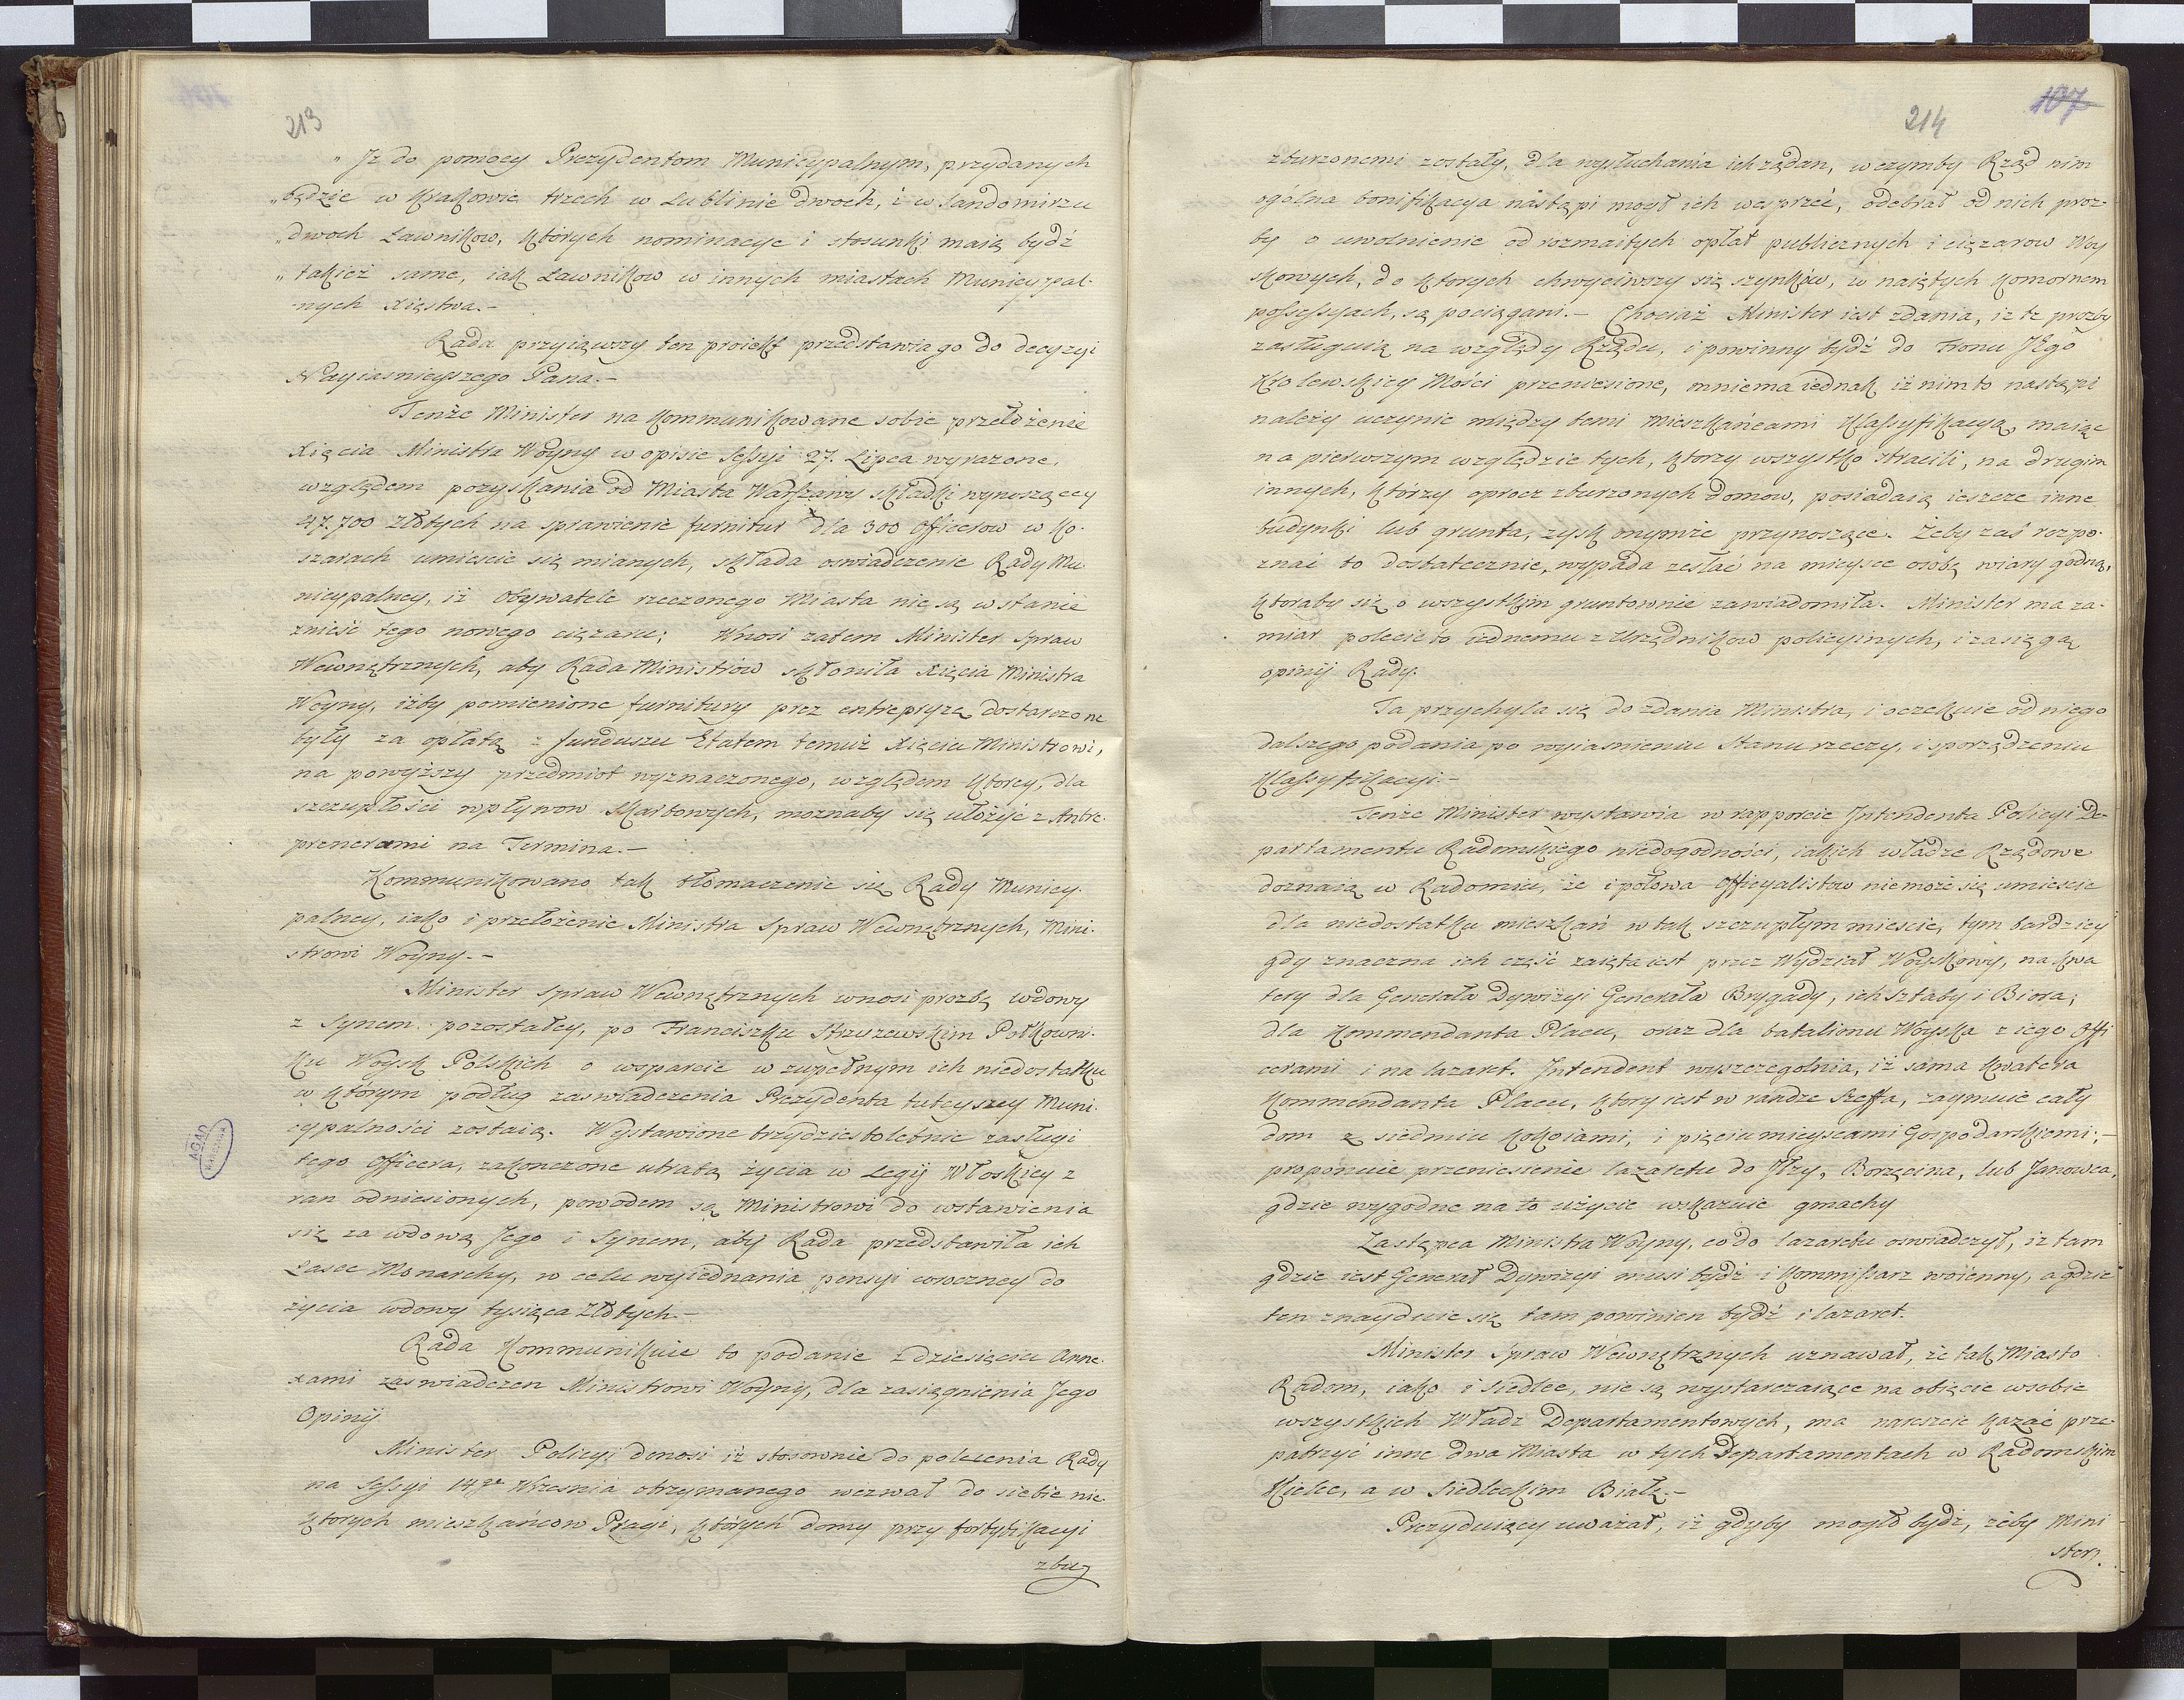 213
„ Jż do pomocy Prezydentom Municypalnym, przydanych
„ będzie w Krakowie trzech w Lublinie dwóch, i w Sandomirzu
„ dwoch Ławnikow, których nominacye i stosunki maią bydź
„ takież same, iak Ławnikow w innych miastach Municypal-
nych Xięstwa.-
Rada przyiąwszy ten proiekt przedstawia go do decyzyi
Nayiasnieyszego Pana.-
Tenże Minister na kommunikowane sobie przełożenie
Xięcia Ministra Woyny w opisie Sessyi 27. Lipca wyrażone,
względem pozyskania od Miasta Warszawy składki wynoszącey
47.700 złotych na sprawienie furnitur dla 300 Officerow w ko-
szarach umieścić się mianych, składa oswiadczenie Rady Mu
nicypalney, iż Obywatele rzeczonego Miasta nie są w stanie
znieść tego nowego ciężaru; Wnosi zatem Minister Spraw
Wewnętrznych, aby Rada Ministrów skłoniła Xięcia Ministra
Woyny, iżby pomienione furnitury prez entrepryzę dostarczone
były za opłatą z funduszu Etatem temuż Xięciu Ministrowi,
na powyższy przedmiot wyznaczonego, względem ktorey, dla
szczupłości wpływow Skarbowych, moznaby się ułożyć z Antre-
prenerami na Termina.-
Kommunikowano tak tłomaczenie się Rady Municy-
palney, iako i przełożenie Ministra Spraw Wewnętrznych, Mini-
strowi Woyny.-
Minister Spraw Wewnętrznych wnosi prozbę wdowy
z Synem pozostałey, po Franciszku Strzyzewskim Półkowni-
ku Woysk Polskich o wsparcie w zupełnym ich niedostatku
w którym podług zaswiadczenia Prezydenta tuteyszey Muni-
cypalności zostaią. Wystawione trzydziestoletnie zasługi
tego Officera, zakonczone utratą życia w Legij Włoskiey z
ran odniesionych, powodem są Ministrowi do wstawienia
się za wdową Jego i Synem, aby Rada przedstawiła ich
Łasce Monarchy, w celu wyiednania pensyi coroczney do
życia wdowy tysiąca złotych.-
Rada kommunikuie to podanie z dziesięciu Anne-
xami zaswiadczen Ministrowi Woyny, dla zasiągnienia Jego
Opinij
Minister Policyi donosi iż stosownie do polecenia Rady
na Sessyi 14go Wrzesnia otrzymanego wezwał do siebie nie-
ktorych mieszkańcow Pragi, których domy przy fortyfikacyi
zbu
AGAD
214
107
zburzonemi zostały, dla wysłuchania ich żądan, w czymby Rząd nim
ogólna bonifikacya nastąpi mogł ich wesprzeć, odebrał od nich proz-
by o uwolnienie od rozmaitych opłat publicznych i ciężarow Woy
skowych, do ktorych chwyciwszy się szynków, w naiętych komornem
possessyach, są pociągani.- Chociaż Minister iest zdania, iż te prozby
zasługuią na względy Rządu, i powinny bydź do tronu JEgo
Krolewskiey Mości przeniesione, mniema iednak iż nim to nastąpi
należy uczynic między temi Mieszkańcami Klassyfikacyą, maiąc
na pierwszym względzie tych, ktorzy wszystko stracili, na drugim
innych, którzy oprocz zburzonych domow, posiadaią ieszcze inne
budynki lub grunta, zysk onymże przynoszące. Żeby zaś rozpo-
znać to dostatecznie, wypada zesłać na mieysce osobę wiary godną,
ktoraby się o wszystkim gruntownie zawiadomiła. Minister ma za-
miar polecić to iednemu z Urzędnikow policyinych, i zasięga
opinij Rady.
Ta przychyla się do zdania Ministra, i oczekuie od niego
dalszego podania po wyiasnieniu Stanu rzeczy, i sporządzeniu
Klassyfikacyi.-
Tenże Minister wystawia w rapporcie Jntendenta Policyi De-
partamentu Radomskiego niedogodności, iakich władze Rządowe
doznaią w Radomiu, że i połowa Officyalistow nie może się umieścić
dla niedostatku mieszkań w tak szczupłym mieście, tym bardziey
gdy znaczna ich część zaięta iest przez Wydział Woyskowy, na kwa
tery dla Generała Dywizyi Generała Brygady, ich sztaby i Biora;
dla Kommendanta Placu, oraz dla batalionu Woyska z iego Offi
cerami i na lazaret. Jntendent wyszczególnia, iż sama kwatera
Kommendanta Placu, ktory iest w randze Szeffa, zaymuie cały
dom z siedmiu Pokoiami, i pięciu mieyscami Gospodarskiemi;-
proponuie przeniesienie lazaretu do Jłży, Borzęcina, lub Janowca,
gdzie wygodne na to użycie wskazuie gmachy
Zastępca Ministra Woyny, co do lazaretu oswiadczył, iż tam
gdzie iest Generał Dywizyi musi bydź i Kommissarz woienny, a gdzie
ten znayduie się tam powinien bydź i lazaret.
Minister Spraw Wewnętrznych uznawał, że tak Miasto
Radom, iako i Siedlce, nie są wystarczaiące na obięcie w sobie
wszystkich Władz Departamentowych, ma nareszcie kazać prze-
patrzyć inne dwa Miasta w tych Departamentach w Radomskim
Kielce, a w Siedleckim Białę.-
Prezyduiący uważał, iż gdyby mogło bydź, żeby Mini
ster